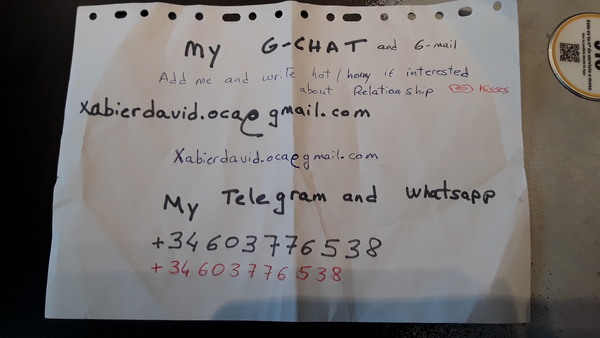 My G-CHAT and G-mail
Add me and write hot/hony if interested
about Relationship Kisses
xabierdavid.oca@gmail.com
Xabierdavid.oca@gmail.com
My Telegram and Whatsapp
+34603776538
+34603776538